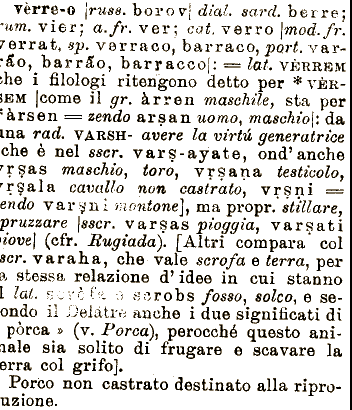 vèrre-o |russ. borov| dial. sard. berre;
um. vier; a.fr. ver; cat. verro |mod. fr.
verrat, sp. verraco, barraco, port. var-
rão, barrão, barrasco|: = lat. VÈRREM
che i filologi ritengono detto per * VÈR-
SEM |come il gr. àrren maschile, sta per
*àrsen = zendo arṣan uomo, maschio|: da
una rad. VARSH- avere la virtú generatrice
che è nel sscr. varṣ-ayate, ond'anche
vṛṣas maschio, toro, vṛṣaṇa testicolo,
vṛṣala cavallo non castrato, vṛṣni =
zendo varṣni montone], ma propr. stillare,
spruzzare |sscr. varṣas pioggia, varṣati
piove| (cfr. Rugiada). [Altri compara col
sscr. varaha, che vale scrofa e terra, per
la stessa relazione d'idee in cui stanno
il lat. scròfa a scrobs fosso, solco, e se-
condo il Delâtre anche i due significati di
« pòrca » (v. Porca), perocché questo ani-
male sia solito di frugare e scavare la
terra col grifo].
Porco non castrato destinato alla ripro-
duzione.